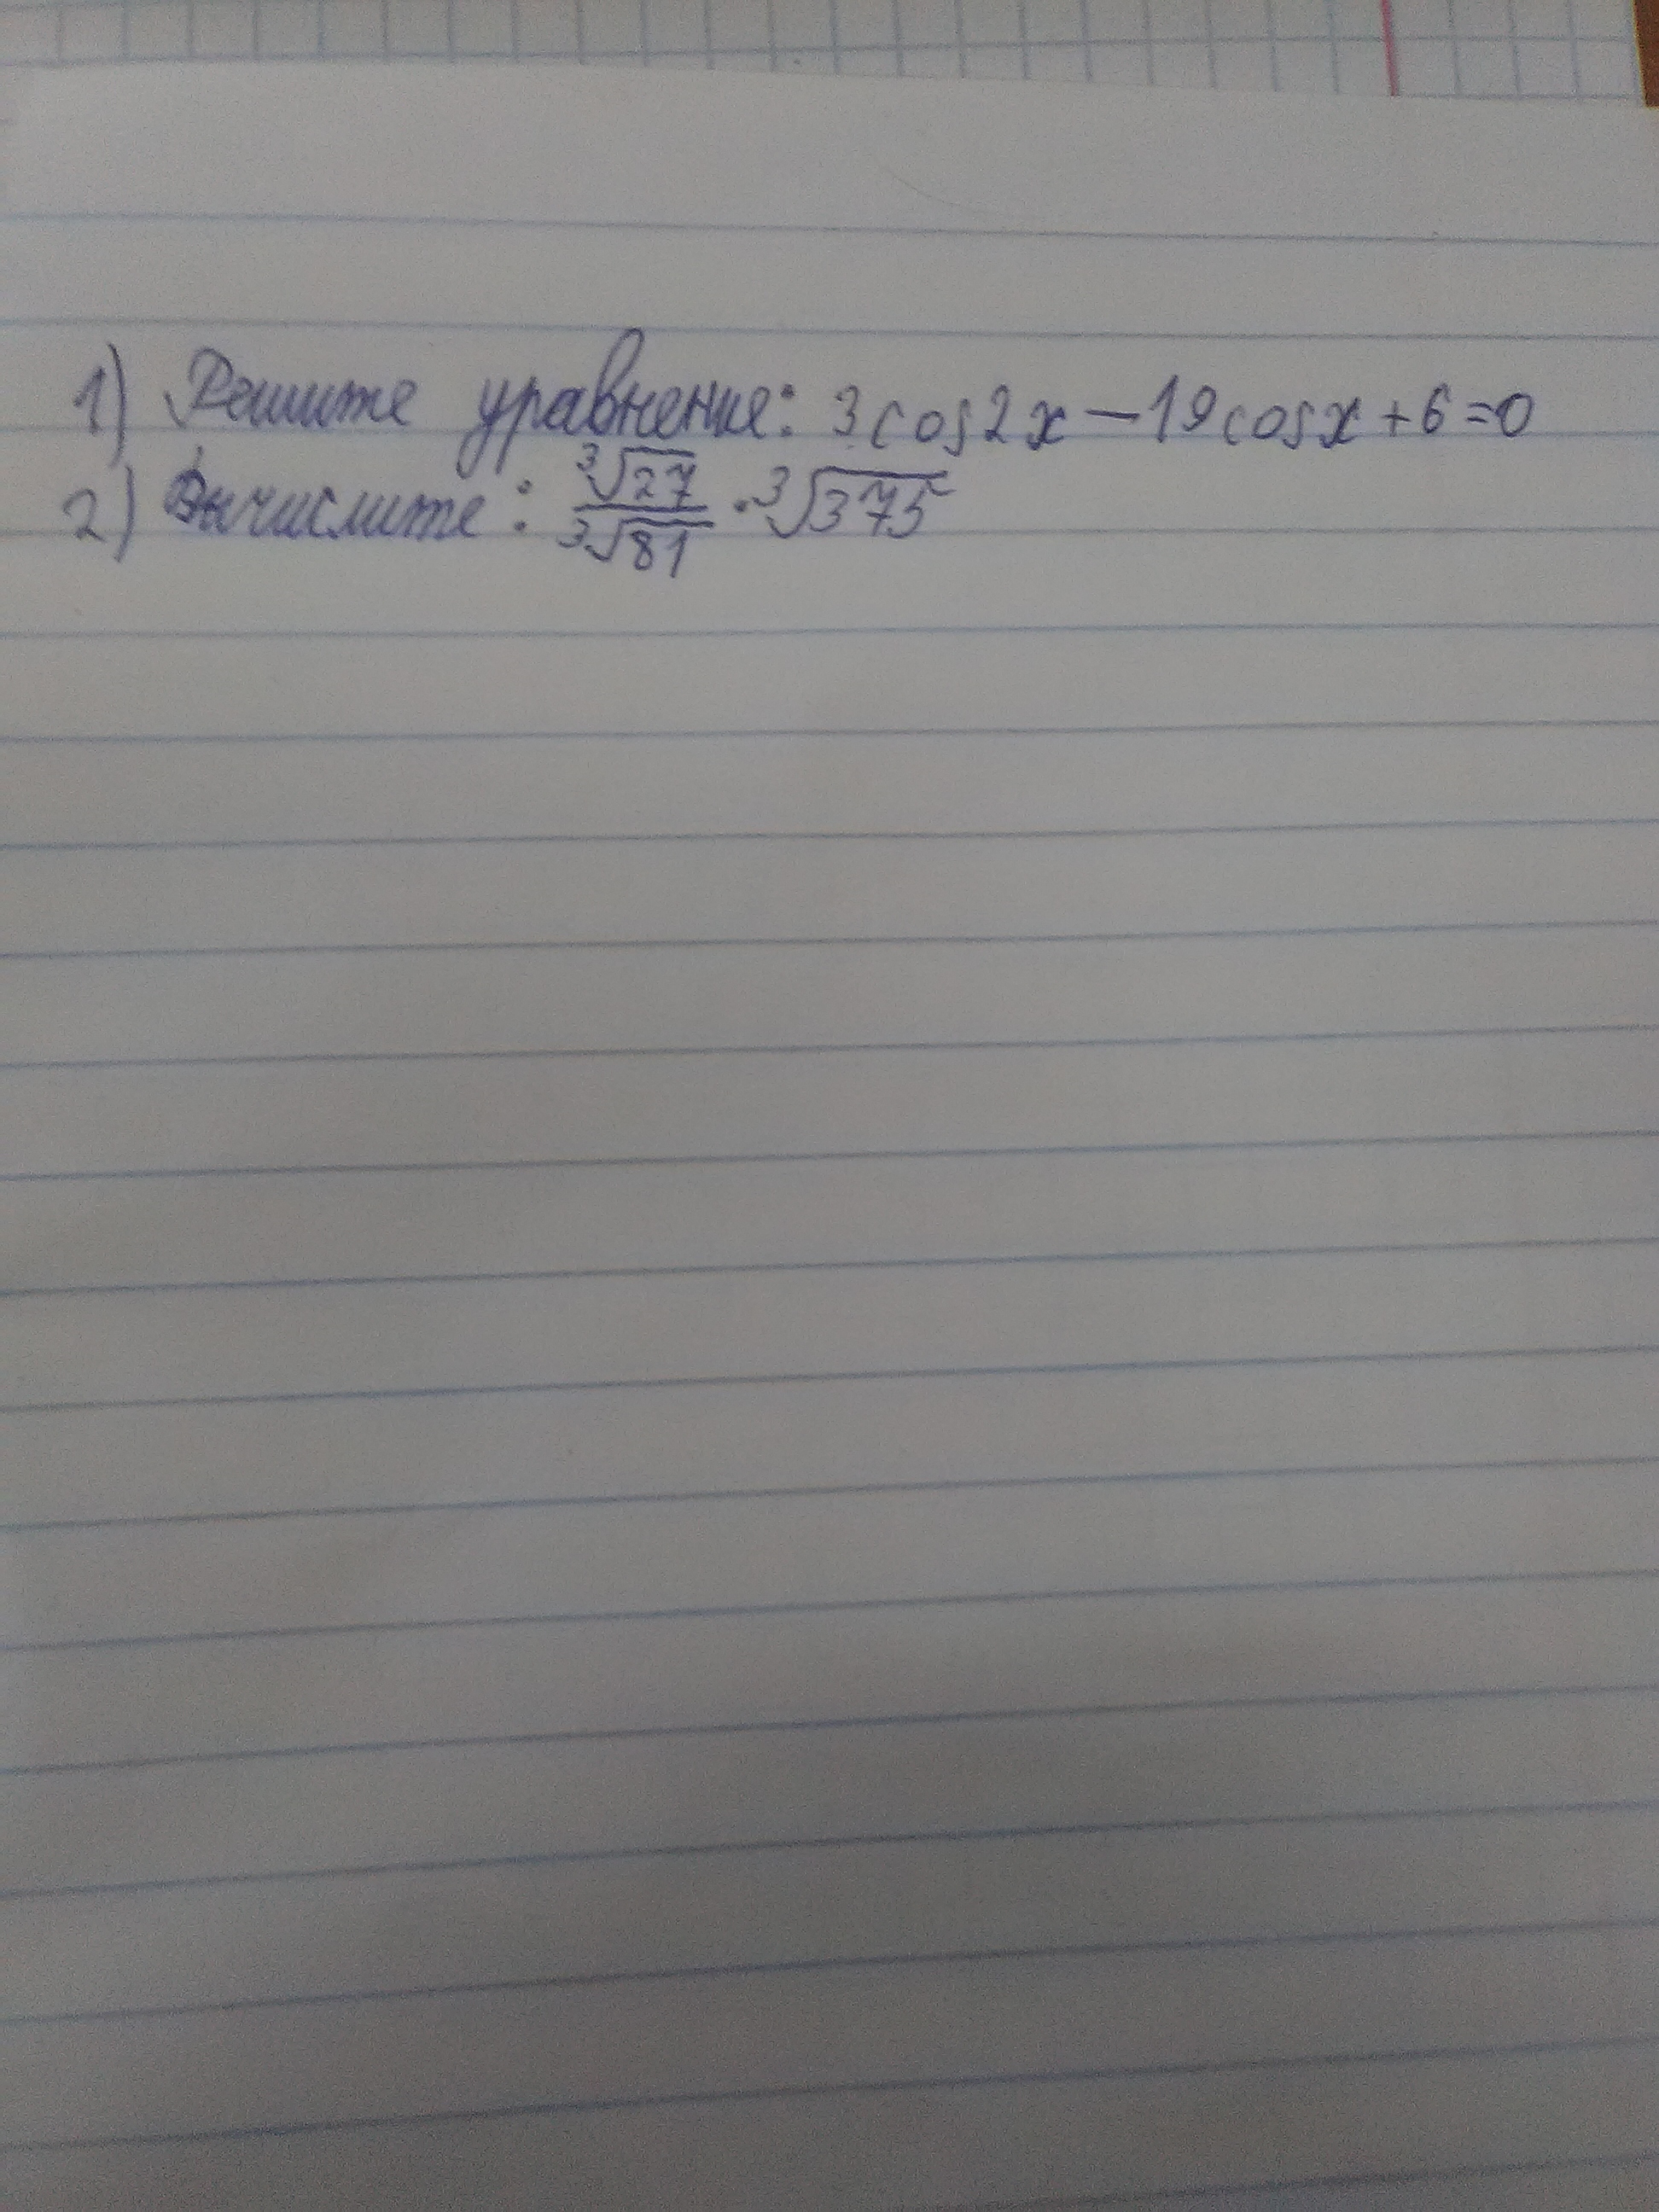 1) Решите уравнение: 3cos2x - 19cosx + 6 = 0
2) Вычислите: ∛27/∛81 · ∛375